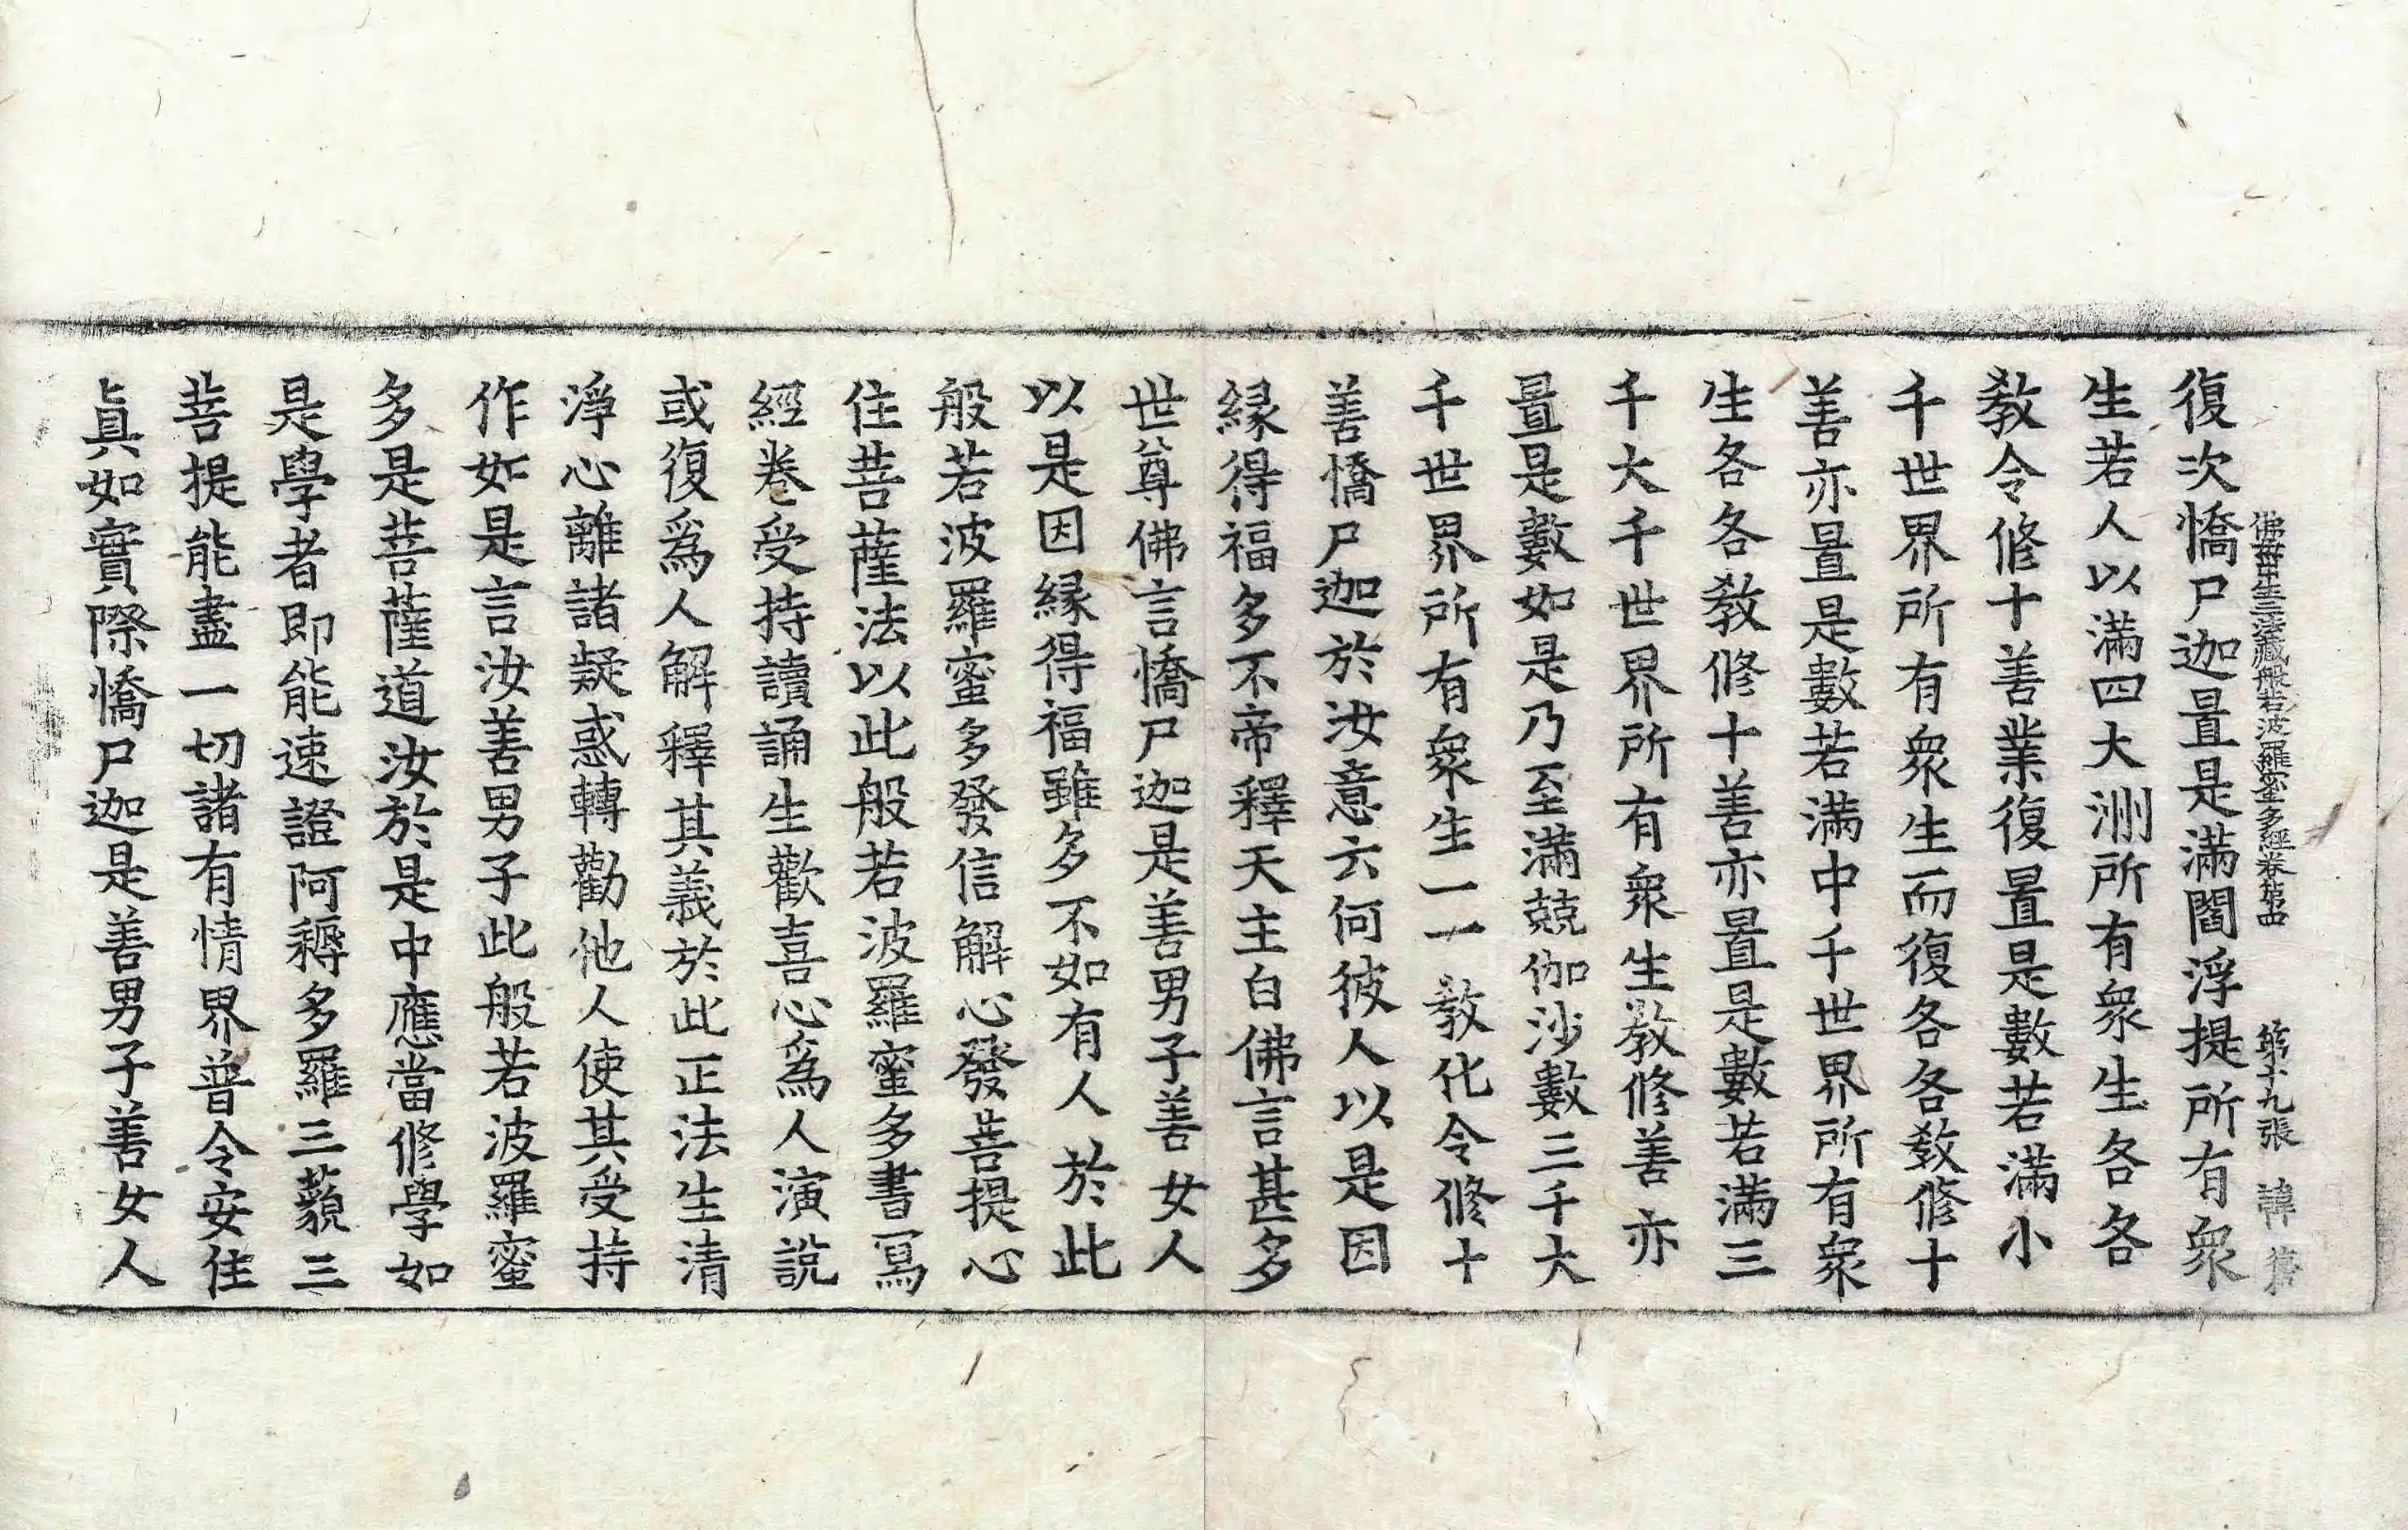 佛母出生三法藏般若波羅蜜多經卷第四 第十九張 諱
復次憍尸迦置是滿閻浮提所有衆
生若人以滿四大洲所有衆生各各
教令修十善業復置是數若滿小
千世界所有衆生而復各各教修十
善亦置是數若滿中千世界所有衆
生各各教修十善亦置是數若滿三
千大千世界所有衆生教修善亦
置是數如是乃至滿兢伽沙數三千大
千世界所有衆生一一教化令修十
善憍尸迦於汝意云何彼人以是因
緣得福多不帝釋天主白佛言甚多
世尊佛言憍尸迦是善男子善女人
以是因緣得福雖多不如有人於此
般若波羅蜜多發信解心發菩提心
住菩薩法以此般若波羅蜜多書寫
經卷受持讀誦生歡喜心爲人演說
或復爲人解釋其義於此正法生清
淨心離諸疑惑轉勸他人使其受持
作如是言汝善男子此般若波羅蜜
多是菩薩道汝於是中應當修學如
是學者即能速證阿耨多羅三藐三
菩提能盡一切諸有情界普令安住
眞如實際憍尸迦是善男子善女人